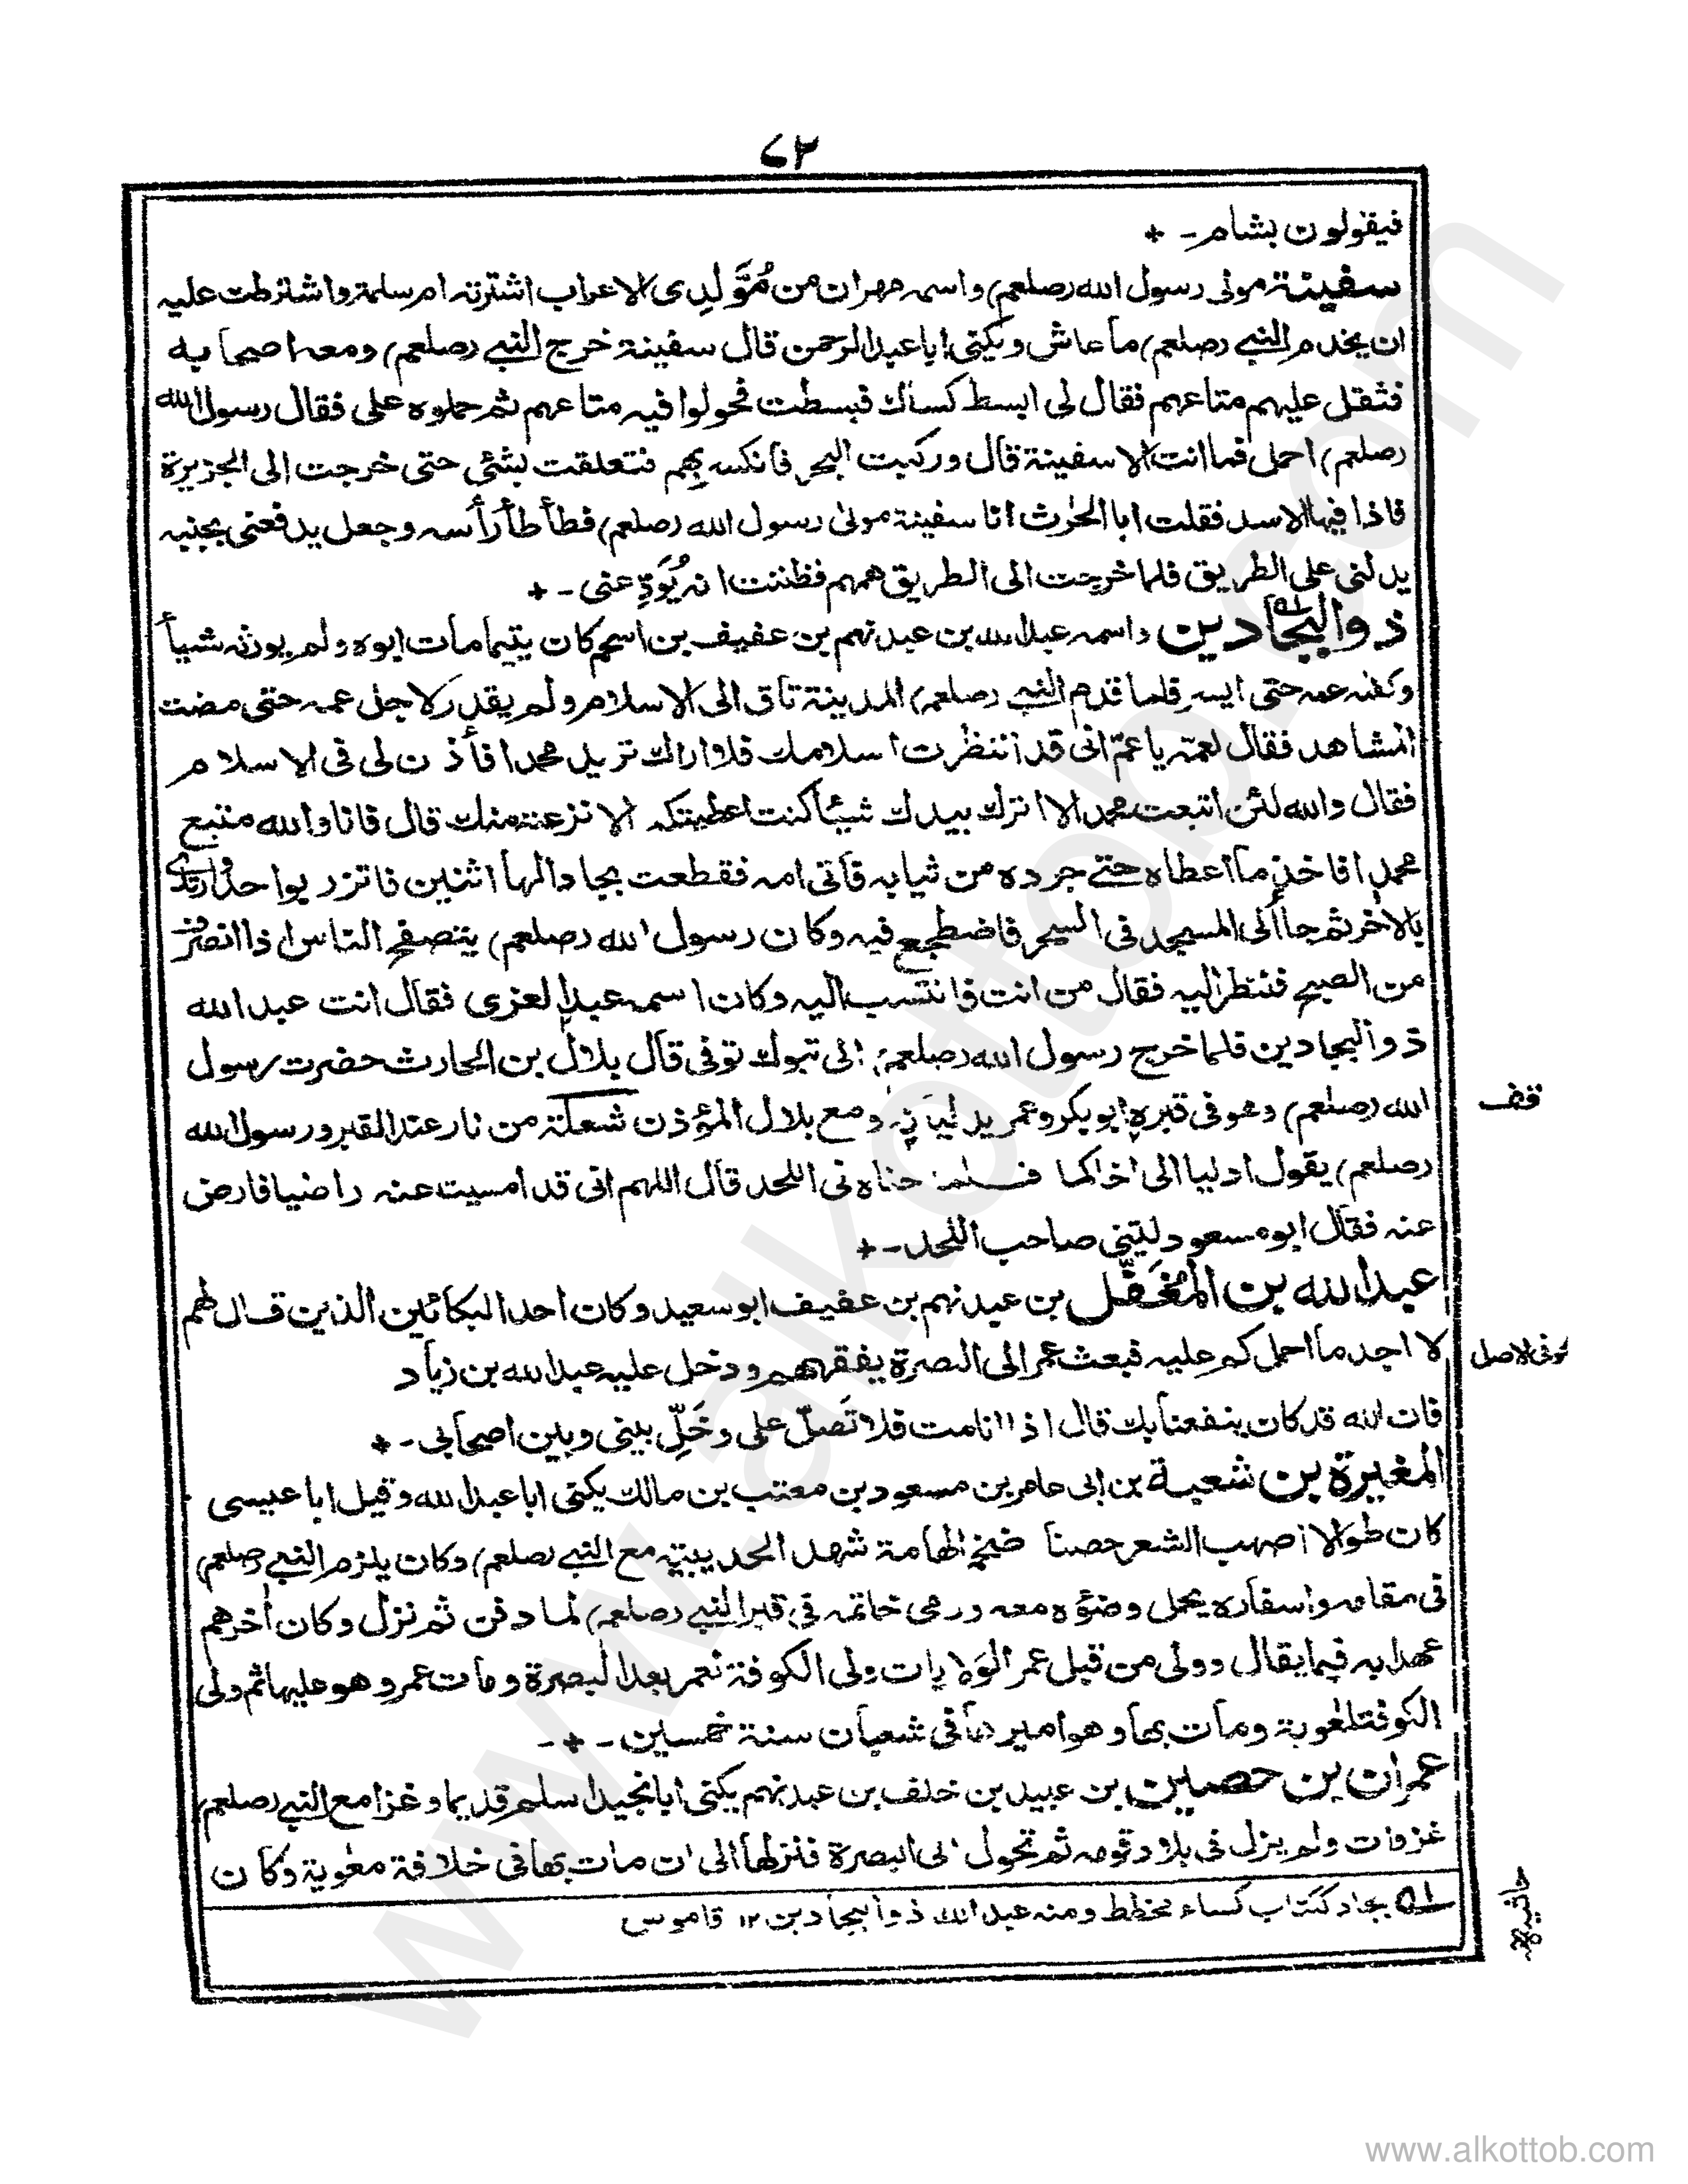 ٦٢
فيقولون بشام - +
سفينة مولى رسول الله (صلعم) واسمه مهران من مُوَّلِدى الاعراب اشترته ام سلمة واشترطت عليه
ان يخدم النبي (صلعم) ما عاش ويكنى ابا عبد الرحمن قال سفينة خرج النبي (صلعم) ومعه اصحابه
فثقل عليهم متاعهم فقال لى ابسط كساك فبسطت فحولوا فيه متاعهم ثم حملوه على فقال رسول الله
(صلعم) احمل فما انت الا سفينة قال وركبت البحر فانكسر بهم فتعلقت بشئى حتى خرجت الى الجزيرة
فاذا فيها الاسد فقلت ابا الحٰرث انا سفينة مولىٰ رسول الله (صلعم) فطأطأ رأسه وجعل يدفعنى بجنبه
يدلنى على الطريق فلما خرجت الى الطريق همهم فظننت انه يُوَدِّعنى - +
ذو البجادين واسمه عبد الله بن عبد نهم بن عفيف بن اسحم كان يتيما مات ابوه ولم يورثه شيأ
وكفله عمه حتى ايسر فلما قدم النبي (صلعم) المدينة تاق الى الاسلام ولم يقدر لاجل عمه حتى مضت
المشاهد فقال لعمه يا عمّ انى قد انتظرت اسلامك فلا اراك تريد محمدا فأذن لى فى الاسلام
فقال والله لئن اتبعت محمدا لا اترك بيدك شيئا كنت اعطيتكه الا نزعته منك قال فانا والله متبع
محمدا فاخذ ما اعطاه حتى جرده من ثيابه فأتى امه فقطعت بجادا لها اثنين فاتزر بواحد وارتدى
بالاخر ثم جاأ الى المسجد فى السحر فاضطجع فيه وكان رسول الله (صلعم) يتصفح الناس اذا انصرف
من الصبح فنظر اليه فقال من انت فانتسب اليه وكان اسمه عبد العزى فقال انت عبد الله
ذو البجادين فلما خرج رسول الله (صلعم) الى تبوك توفى قال بلال بن الحارث حضرت رسول
الله (صلعم) وهو فى قبره ابو بكر وعمر يدليانه ومع بلال المؤذن شعلة من نار عند القبر ورسول الله
(صلعم) يقول ادليا الى اخاكما فلما حناه فى اللحد قال اللهم انى قد امسيت عنه راضيا فارض
عنه فقال ابو مسعود ليتنى صاحب اللحد - +
عبد الله بن المُغَفَّل بن عبد نهم بن عفيف ابو سعيد وكان احد البكائين الذين قال لهم
لا اجد ما احملكم عليه فبعث عمر الى البصرة يفقههم ودخل عليه عبد الله بن زياد
فان الله قد كان ينفعنا بك قال اذا انا مت فلا تَصلّ على وخَلِّ بينى وبين اصحابى - +
المغيرة بن شعبة بن ابى عامر بن مسعود بن معتب بن مالك يكنى ابا عبد الله وقيل ابا عيسى
كان طوالا اصهب الشعر حصنا ضخم الهامة شهد الحديبية مع النبي (صلعم) وكان يلزم النبي (صلعم)
فى مقامه واسفاره يحمل وضوءه معه ورمى خاتمه فى قبر النبي (صلعم) لما دفن ثم نزل وكان اٰخرهم
عهدا به فيما يقال وولى من قبل عمر الوَلايات ولى الكوفة لعمر بعد البصرة ومات عمر وهو عليها ثم ولى
الكوفة لمعٰوية ومات بها وهو اميرها فى شعبان سنة خمسين - + -
عمران بن حصين بن عبيد بن خلف بن عبد نهم يكنى ابا نجيد اسلم قديما وغزا مع النبي (صلعم)
غزوات ولم يزل فى بلاد قومه ثم تحول الى البصرة فنزلها الى ان مات بها فى خلافة معٰوية وكان
قف
كو فى الاصل
حاشيه
١ه بجاد ككتاب كساء مخطط ومنه عبد الله ذو البجادين ١٢ قاموس
www.alkottob.com
www.alkottob.com